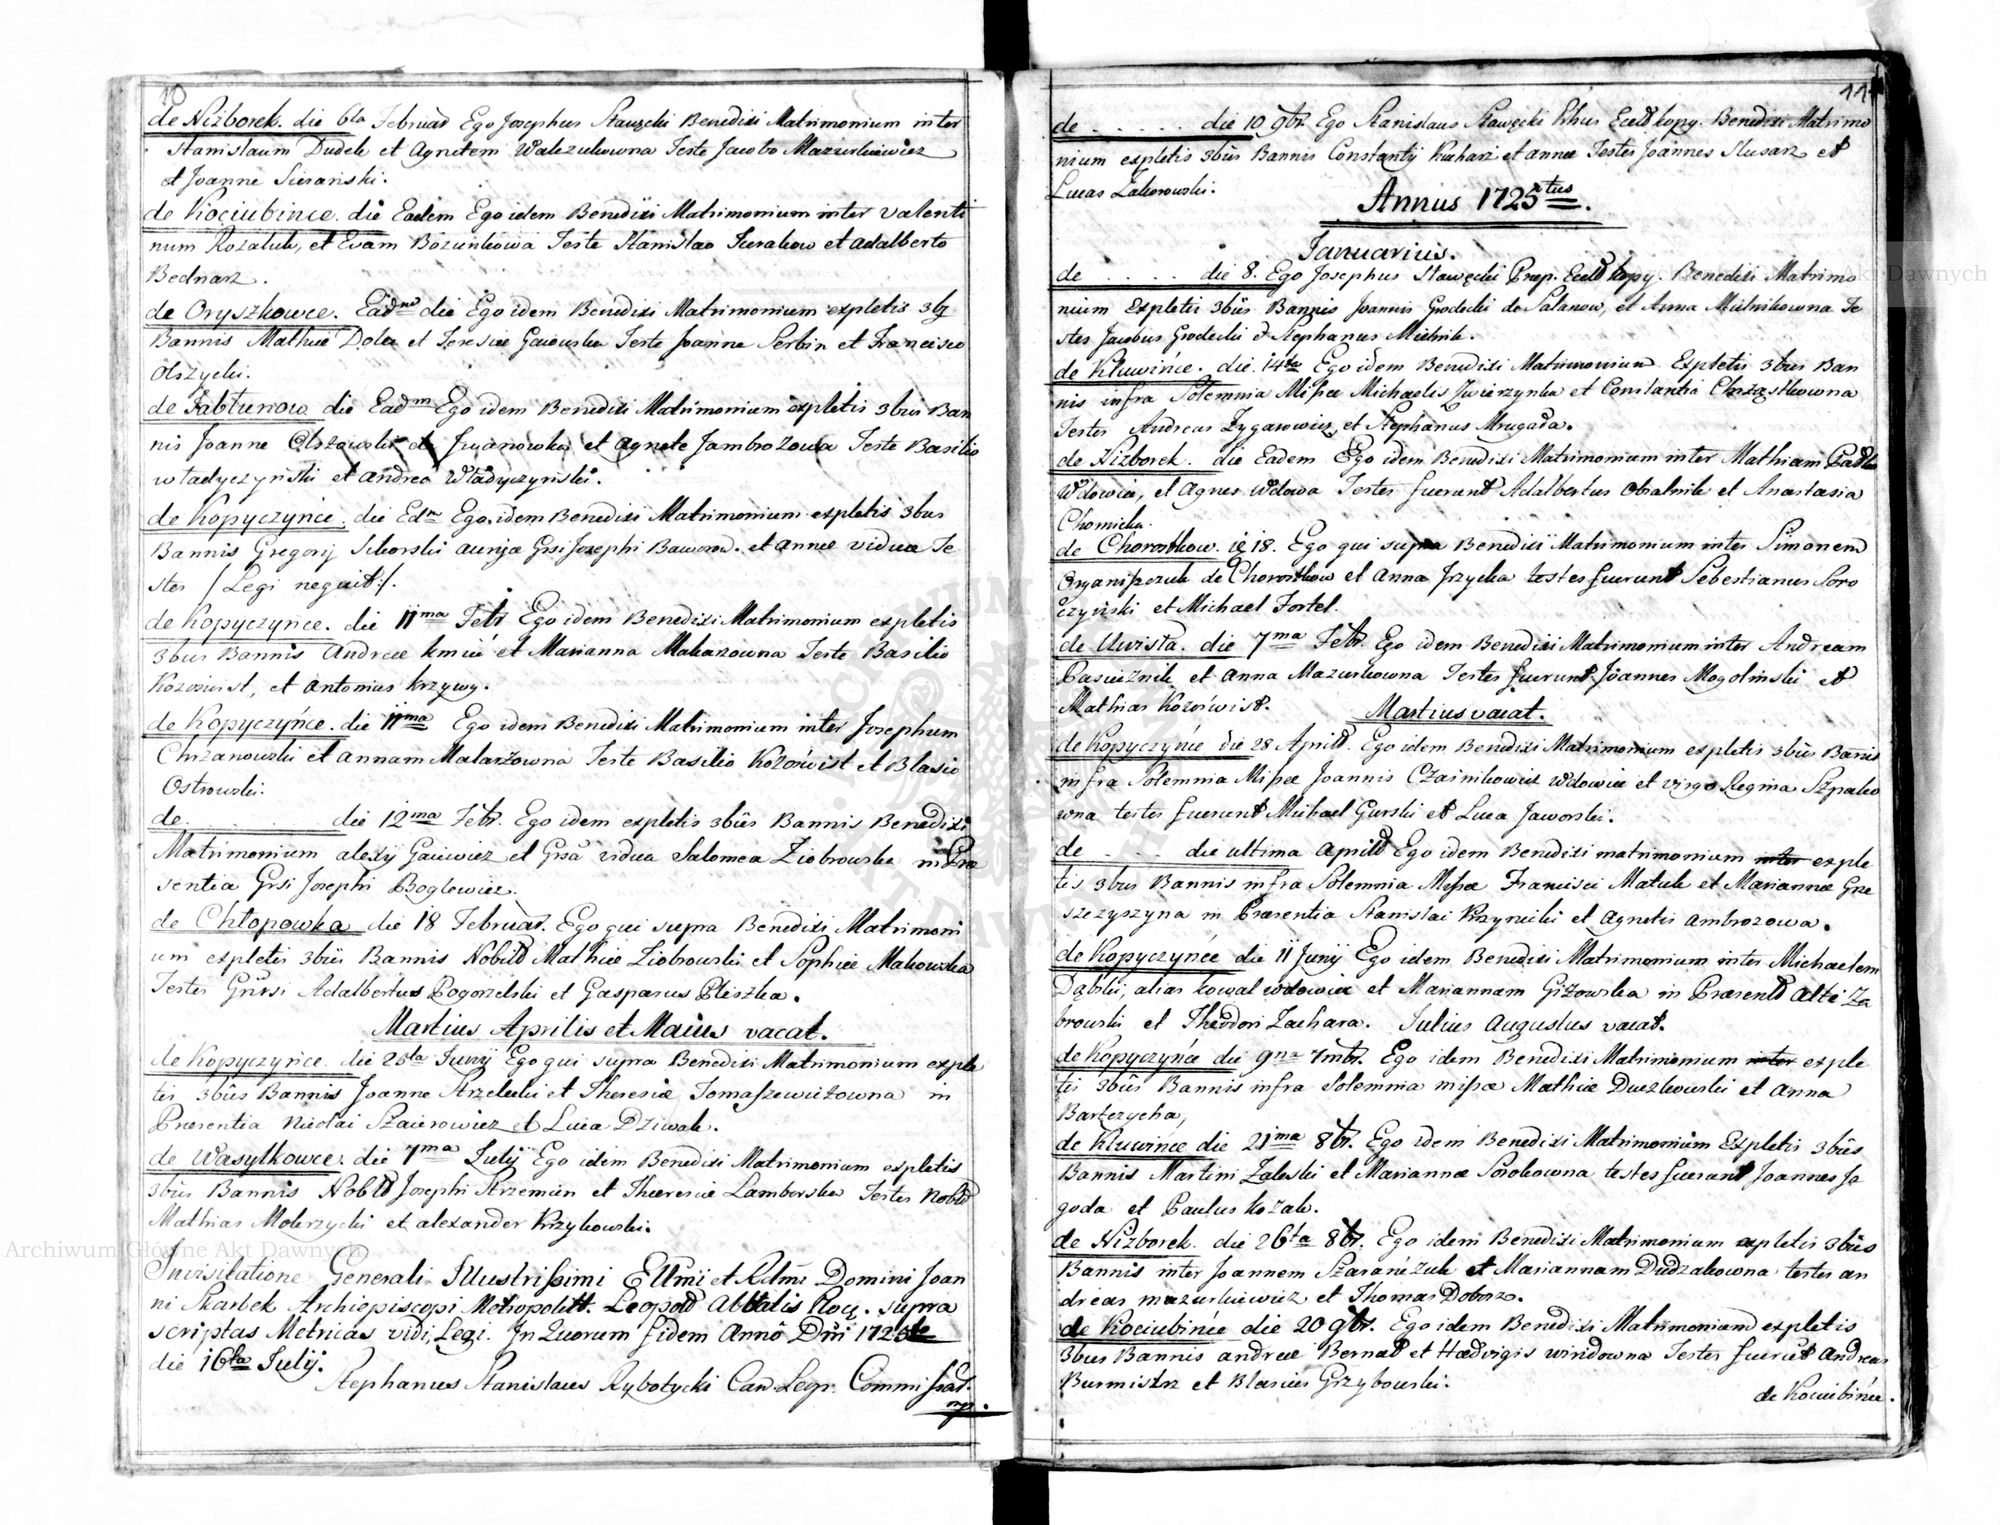 10
de Nizborek. die 6ta Februar Ego Josephus Stawęcki Benedixi Matrimonium inter
Stanislaum Dudek et Agnetem Walczukowna Teste Jacobo Mazurkiewicz
et Joanne Sierański.
de Kociubince. die Eadem Ego idem Benedixi Matrimonium inter Valenti
num Rozaluk, et Evam Bozunkowa Teste Stanislao Surakow et Adalberto
Bednarz.
de Oryszkowce. Eadm die Ego idem Benedixi Matrimonium expletis 3bg
Bannis Mathiæ Dola et Teresiæ Gaiowska Teste Joanne Serbin et Francisco
Olszycki.
de Jabłunow die Eadm Ego idem Benedixi Matrimonium expletis 3bus Ban
nis Joanne Olszowski et Jwanowka et Agnete Jambrozowa Teste Basilio
Władyczyński et Andrea Władyczyński.
de Kopyczyńce. die Edm Ego idem Benedixi Matrimonium expletis 3bus
Bannis Gregorij Sikorski aurigæ Gnsi Josephi Baworow. et Annæ viduæ Te
stes /: Legi nequit :/.
de Kopyczyńce. die 11ma Febr Ego idem Benedixi Matrimonium expletis
3bus Bannis Andreæ Kmié et Marianna Makarowna Teste Basilio
Kozowist, et Antonius Krzywy.
de Kopyczyńce. die 11ma Ego idem Benedixi Matrimonium inter Josephum
Chrzanowski et Annam Malarzowna Teste Basilio Kozówist et Blasio
Ostrowski.
de . . . . . . die 12ma Febr. Ego idem expletis 3bûs Bannis Benedixi
Matrimonium Alexÿ Gaiewicz et Gnsâ vidua Salomea Ziobrowska in Præ
sentia Gnsi Josephi Boglewicz.
de Chłopowka die 18 Februar. Ego qui supra Benedixi Matrimoni
um expletis 3bûs Bannis Nobild Mathiæ Ziobrowski et Sophiæ Makowska
Testes Gnûsi Adalbertus Pogorzelski et Gasparus Pliszka.
Martius Aprilis et Maius vacat.
de Kopyczyńce. die 25ta Junÿ Ego qui supra Benedixi Matrimonium exple
tis 3bûs Bannis Joanne Strzelecki et Theresiæ Tomaszewiczowna in
Præsentia Nicolai Szaierowicz et Luca Dziwak.
de Wasylkowce. die 7ma Julÿ Ego idem Benedixi Matrimonium expletis
3bûs Bannis Nobild Josephi Krzemien et Theresiæ Lamborska Testes Nobild
Mathias Mokrzycki et Alexander Krzykowski.
In visitatione Generali Jllustrissimi Ellmi et Rdmi Domini Joan
ni Skarbek Archiepiscopi Metropolitt. Leopold Abbatis Rocy. supra
scriptas Metricas vidi, Legi. Jn Quorum fidem Anno Dni 1725
die 16ta Julÿ.
Stephanus Stanislaus Rybotycki Can. Leop. Commissar.
mp.
11
de . . . . . . die 10 9br. Ego Stanislaus Stawęcki Vihus Eccld Kopy. Benedixi Matrimo
nium expletis 3bûs Bannis Constantÿ Kucharz et Annæ Testes Joannes Slusarz et
Lucas Lakorowski.
Annus 1725tus.
Januarius.
de . . . . . die 8. Ego Josephus Stawęcki Prep. Eccld Kopy. Benedixi Matrimo
nium Expletis 3bûs Bannis Joannis Grodecki de Satanow, et Anna Mielnikowna Te
stes Jacobus Grodecki et Stephanus Mielnik.
de Kluwińce. die. 14ta Ego idem Benedixi Matrimonium Expletis 3bus Ban
nis infra Solemnia Missæ Michaelis Zwierzynka et Constantia Chrząstkowna
Testes Andreas Zygarowicz, et Stephanus Mrugała.
de Nizborek. die Eadem Ego idem Benedixi Matrimonium inter Mathiam Padlo
Wdowiec, et Agnes Wdowa Testes fuerunt Adalbertus Obalnik et Anastasia
Chomicka.
de Chorostkow. ie 18. Ego qui supra Benedixi Matrimonium inter Simonem
Organiszczuk de Chorostkow et Anna Jrzycka testes fuerunt Sebestianus Soro
czyński et Michael Fortel.
de Uwista. die 7ma Febr. Ego idem Benedixi Matrimonium inter Andream
Pasieznik et Anna Mazurkowna Testes fuerunt Joannes Mogolinski et
Mathias Kozówist. Martius vacat.
de Kopyczyńce die 28 Aprild. Ego idem Benedixi Matrimonium expletis 3bûs Banis
infra Solemnia Missæ Joannis Czainikowicz Wdowiec et virgo Regina Szpako
wna testes fuerunt Michael Gurski et Luca Jaworski.
de . . . . die ultima Aprild Ego idem Benedixi matrimonium inter exple
tis 3bus Bannis infra Solemnia Missæ Francisci Matuk et Mariannæ Grze
szczyszyna in Præsentia Stanislai Krzynicki et Agnetis Ambrozowa.
de Kopyczyńce die 11 Junÿ Ego idem Benedixi Matrimonium inter Michaelem
Dąbski, alias Kowal wdowiec et Mariannam Gizowska in Præsentd Alti Za
browski et Theodori Zachara. Julius Augustus vacat.
de Kopyczyńce die 9na 7mbr. Ego idem Benedixi Matrimonium inter exple
tis 3bûs Bannis infra Solemnia missæ Mathiæ Duczkowski et Anna
Bartczycha,
de Kluwince die 21ma 8br. Ego idem Benedixi Matrimonium Expletis 3bûs
Bannis Martini Zaleski et Mariannæ Sorokowna testes fuerunt Joannes Ja
goda et Paulus Kozak.
de Nizborek. die 26ta 8br. Ego idem Benedixi Matrimonium expletis 3bûs
Bannis inter Joannem Szarańczuk et Mariannam Dudzakowna testes an
dreas Mazurkiewicz et Thomas Dobosz.
de Kociubińce die 20 9br. Ego idem Benedixi Matrimonium expletis
3bus Bannis Andreæ Bernad et Hædvigis Windowna Testes fuerût Andreas
Burmistrz et Blasius Grzybowski.
de Kociubińce.
Archiwum Główne Akt Dawnych